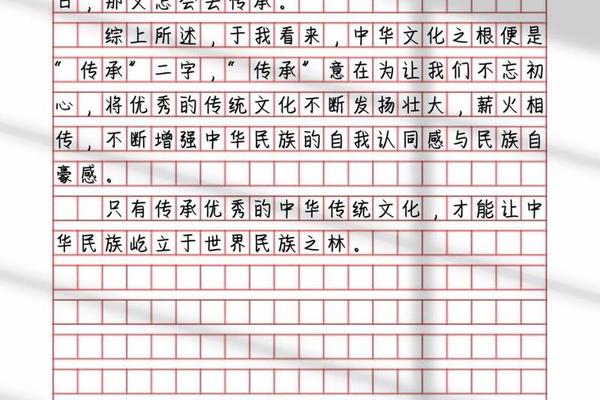 日，那又怎会去传承。
综上所述，于我看来，中华文化之根便是
“传承”二字，“传承”意在为让我们不忘初
心，将优秀的传统文化不断发扬壮大，薪火相
传，不断增强中华民族的自我认同感与民族自
豪感。
只有传承优秀的中华传统文化，才能让中
华民族屹立于世界民族之林。